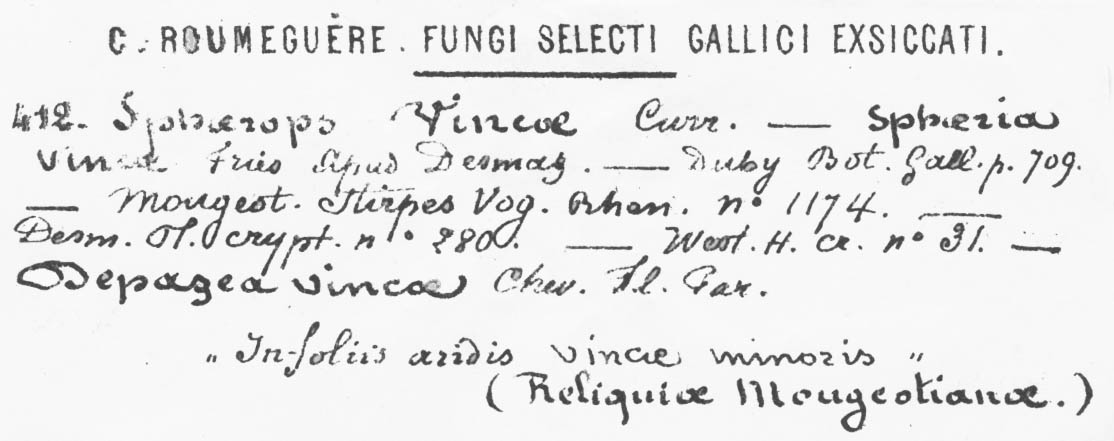 C. ROUMEGUÈRE. FUNGI SELECTI GALLICI EXSICCATI.
412. Sphærops Vincæ Curr. — Spheria
Vincæ Fries Apud Desmaz. — Duby Bot. Gall. p. 709.
— Mougeot. Stirpes Vog. Rhen. n° 1174. —
Desm. Pl. crypt. n° 280. — West. H. cr. n° 31. —
Depazea vincæ Chev. Fl. Par.
„ In foliis aridis vincæ minoris „
(Reliquiæ Mougeotianæ.)